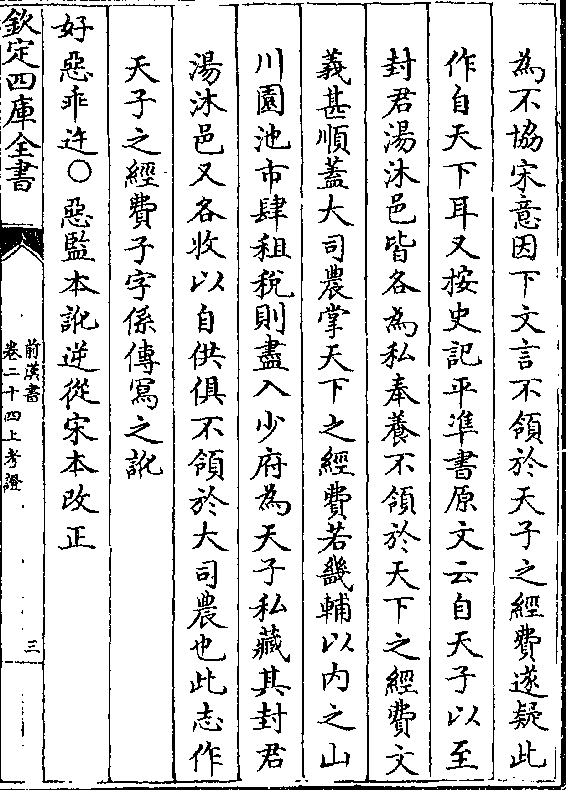 為不協宋意因下文言不領於天子之經費遂疑此
作自天下耳又按史記平準書原文云自天子以至
封君湯沐邑皆各為私奉養不領於天下之經費文
義甚順蓋大司農掌天下之經費若畿輔以內之山
川園池市肆租稅則盡入少府為天子私藏其封君
湯沐邑又各收以自供俱不領於大司農也此志作
天子之經費子字係傳寫之訛
好惡乖迕○惡監本訛逆從宋本改正
欽定四庫全書
前漢書
卷二十四上考證
三